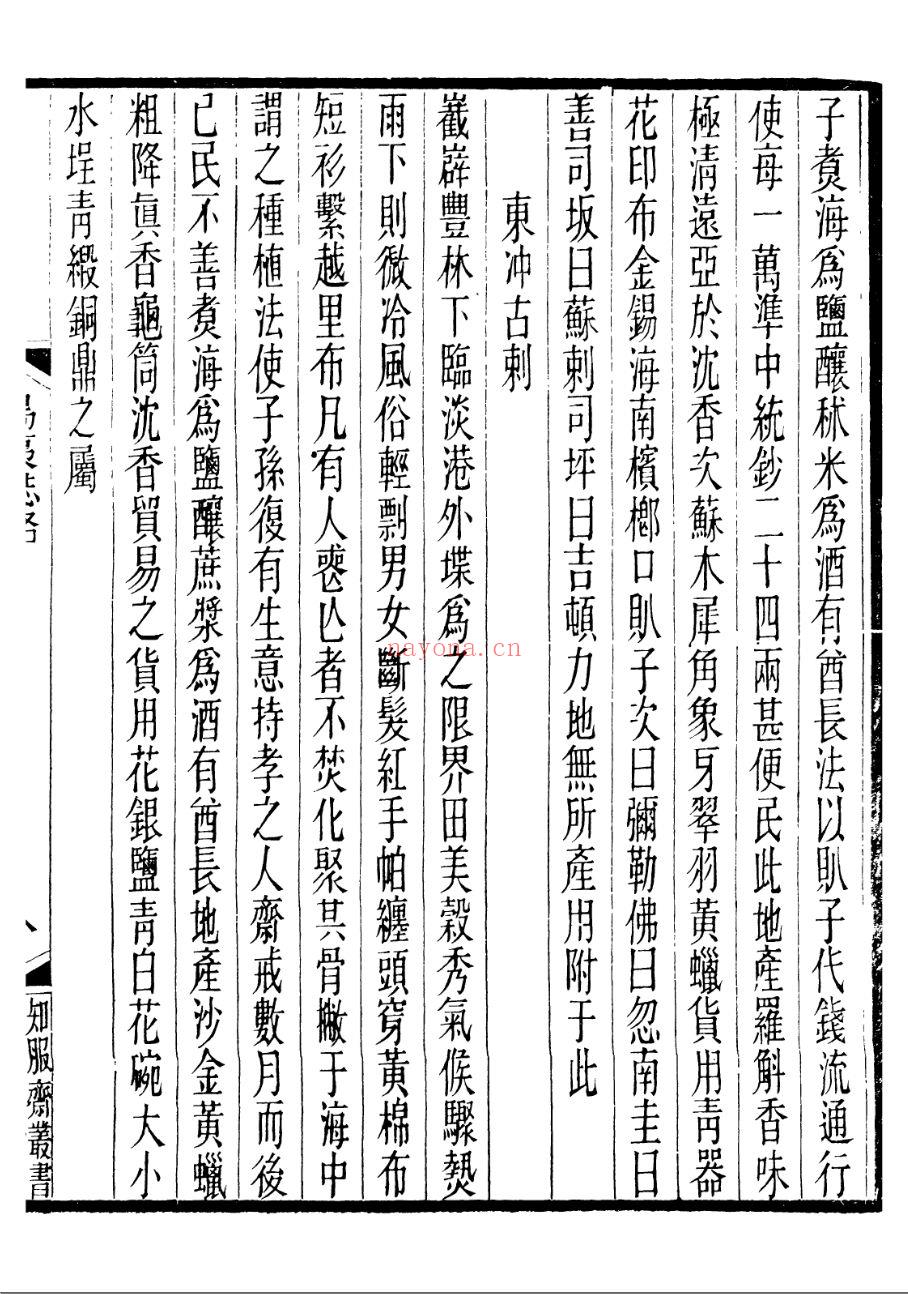 子煑海爲鹽釀秫米爲酒有酋長法以𧴩子代錢流通行
使每一萬準中統鈔二十四兩甚便民此地產羅斛香味
極清遠亞於沈香次蘇木犀角象牙翠羽黃蠟貨用青器
花印布金錫海南檳榔口𧴩子次曰彌勒佛曰忽南圭曰
善司坂曰蘇剌司坪曰吉頓力地無所產用附于此
東冲古剌
嶻嶭豐林下臨淡港外堞爲之限界田美穀秀氣候驟熱
雨下則微冷風俗輕剽男女斷髮紅手帕纏頭穿黃棉布
短衫繫越里布凡有人喪亾者不焚化聚其骨撇于海中
謂之種植法使子孫復有生意持孝之人齋戒數月而後
已民不善煑海爲鹽釀蔗漿爲酒有酋長地產沙金黃蠟
粗降眞香龜筒沈香貿易之貨用花銀鹽青白花碗大小
水埕青緞銅鼎之屬
島夷志略
八
知服齋叢書
nayona.cn